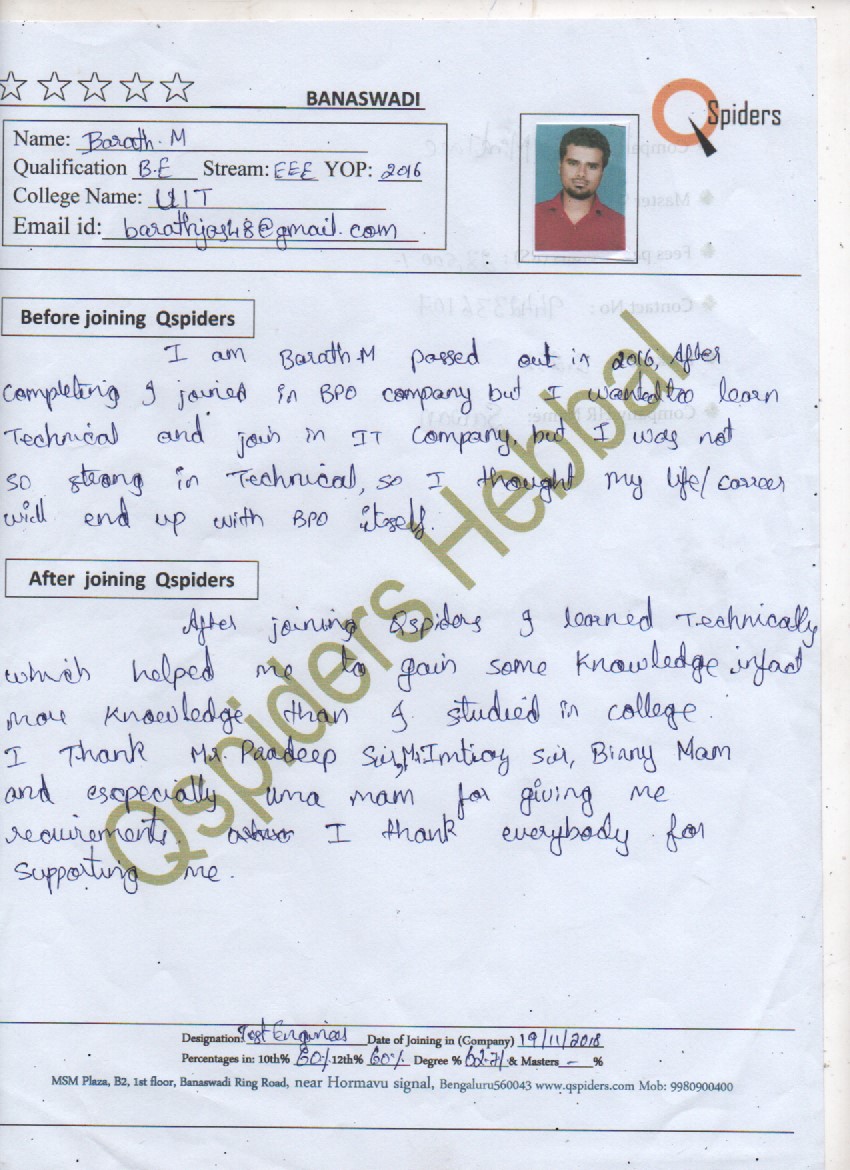 BANASWADI
QSpiders
Name: Barath.M
Qualification B.E Stream: EEE YOP: 2016
College Name: UIT
Email id: barathjos48@gmail.com
Before joining Qspiders
I am Barath.M passed out in 2016, After
completing I joined in BPO company but I wanted to learn
Technical and join in IT Company, but I was not
so strong in Technical, so I thought my life/career
will end up with BPO itself.
After joining Qspiders
After joining Qspiders I learned Technically
which helped me to gain some knowledge infact
more knowledge than I studied in college.
I Thank Mr. Pradeep Sir, Mr. Imtiaz sir, Binny Mam
and escpecially uma mam for giving me
requirements. I thank everybody for
supporting me.
Qspiders Hebbal
Designation Test Engineer Date of Joining in (Company) 19/11/2018
Percentages in: 10th% 60% 12th% 60% Degree % 62.7% & Masters - %
MSM Plaza, B2, 1st floor, Banaswadi Ring Road, near Hormavu signal, Bengaluru560043 www.qspiders.com Mob: 9980900400